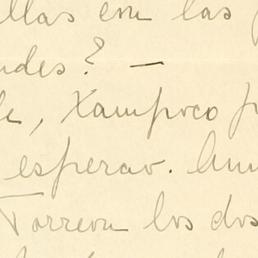 llas con las
ndes? —
le, Xampoco p
esperar. Aun
Torreon los dos